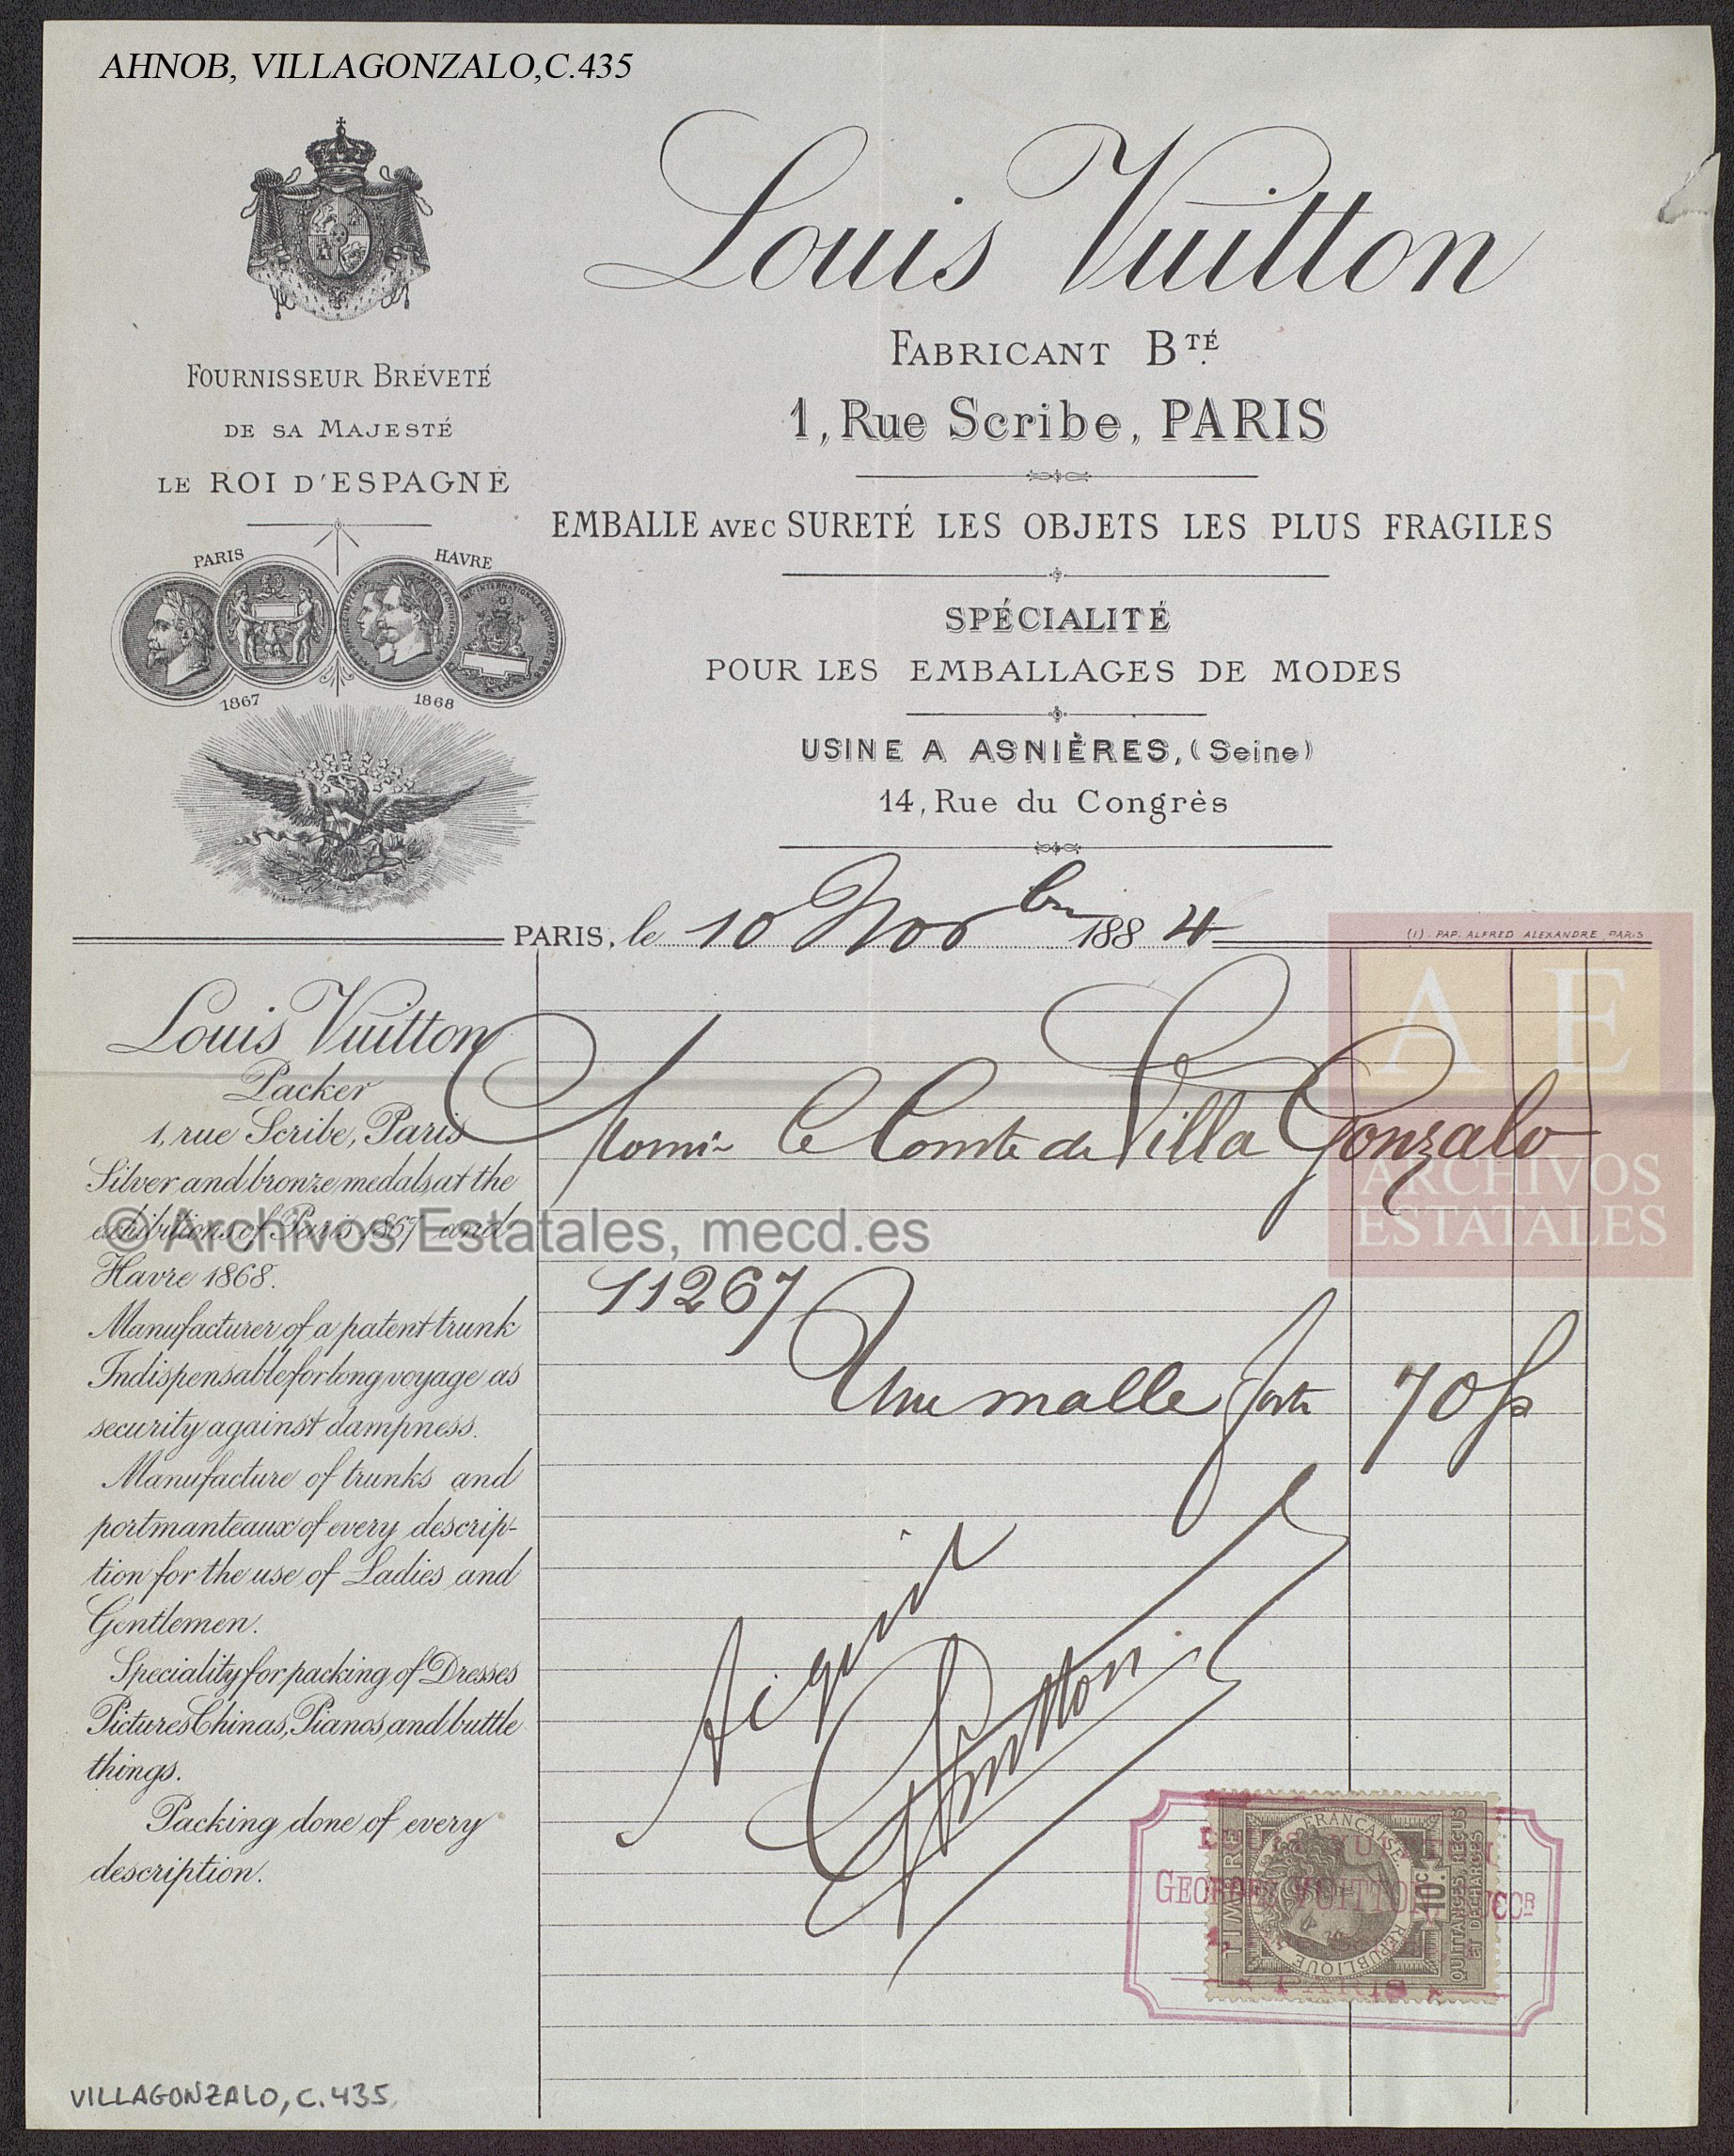 AHNOB, VILLAGONZALO,C.435
Louis Vuitton
FABRICANT BTÉ
1, Rue Scribe, PARIS
EMBALLE AVEC SURETÉ LES OBJETS LES PLUS FRAGILES
SPÉCIALITÉ
POUR LES EMBALLAGES DE MODES
USINE A ASNIÈRES, (Seine)
14, Rue du Congrès
FOURNISSEUR BRÉVETÉ
DE SA MAJESTÉ
LE ROI D'ESPAGNE
PARIS HAVRE
1867 1868
PARIS, le 10 Novbre 1884
(1). PAP. ALFRED ALEXANDRE, PARIS
Louis Vuitton
Packer
1, rue Scribe, Paris
Silver and bronze medals at the
exhibitions of Paris 1867 and
Havre 1868.
Manufacturer of a patent trunk
Indispensable for long voyage as
security against dampness.
Manufacture of trunks and
portmanteaux of every descrip-
tion for the use of Ladies and
Gentlemen.
Speciality for packing of Dresses
Pictures Chinas, Pianos, and buttle
things.
Packing done of every
description.
le Comte de Villa Gonzalo
11267
Une malle forte 70 f
Acquit
Vuitton
AE
ARCHIVOS
ESTATALES
© Archivos Estatales, mecd.es
LOUIS VUITTON
GEORGES VUITTON SUCCR
PARIS
TIMBRE
REPUBLIQUE FRANÇAISE
10c.
QUITTANCES, REÇUS
ET DÉCHARGES
VILLAGONZALO, C. 435